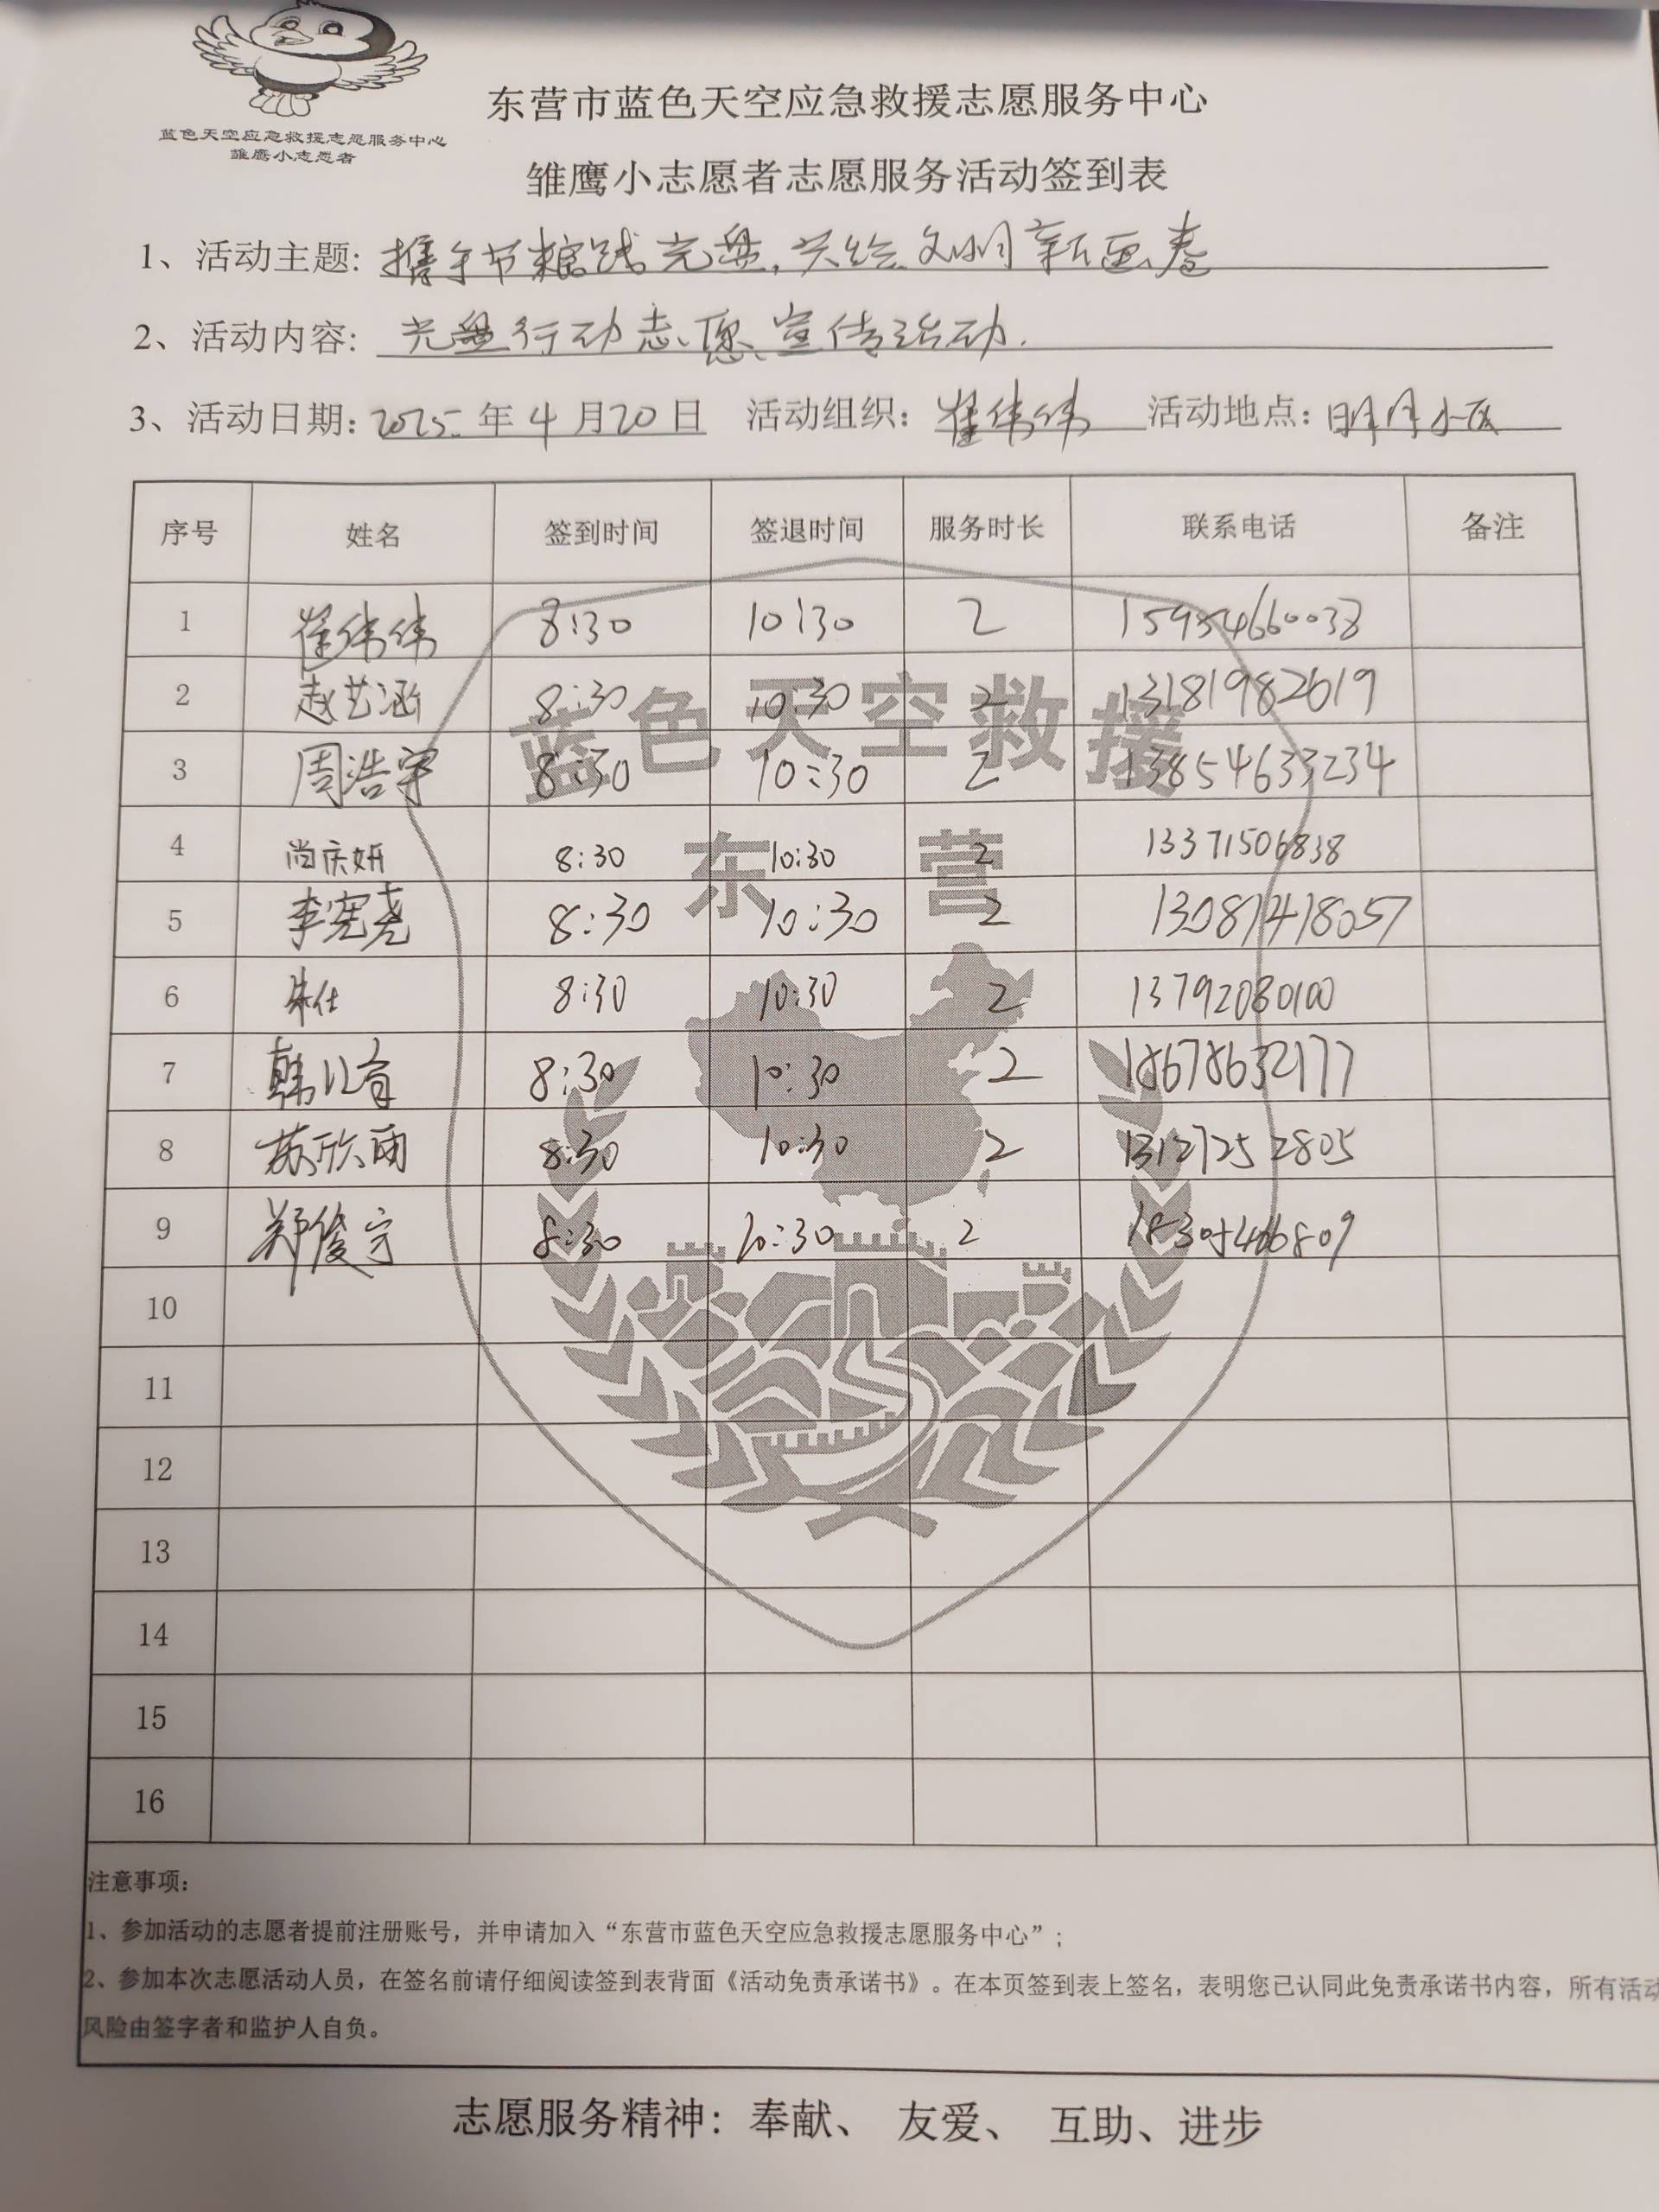 蓝色天空应急救援志愿服务中心
雏鹰小志愿者
东营市蓝色天空应急救援志愿服务中心
雏鹰小志愿者志愿服务活动签到表
1、活动主题: 携手节粮践光盘,共绘文明新画卷
2、活动内容: 光盘行动志愿宣传活动.
3、活动日期: 2025年4月20日 活动组织: 崔伟伟 活动地点: 明月小区
序号 姓名 签到时间 签退时间 服务时长 联系电话 备注
1 崔伟伟 8:30 10:30 2 15954660038
2 赵艺涵 8:30 10:30 2 13181982619
蓝色天空救援
3 周浩宇 8:30 10:30 2 13854633234
4 尚庆妍 8:30 10:30 2 13371506838
东营
5 李宪尧 8:30 10:30 2 13087418057
6 朱仕 8:30 10:30 2 13792080100
7 韩 8:30 10:30 2 18678632177
8 苏欣雨 8:30 10:30 2 13127252805
9 郑俊宇 8:30 10:30 2 18305466809
10
11
12
13
14
15
16
注意事项:
1、参加活动的志愿者提前注册账号，并申请加入“东营市蓝色天空应急救援志愿服务中心”;
2、参加本次志愿活动人员，在签名前请仔细阅读签到表背面《活动免责承诺书》。在本页签到表上签名，表明您已认同此免责承诺书内容，所有活动
风险由签字者和监护人自负。
志愿服务精神：奉献、 友爱、 互助、进步